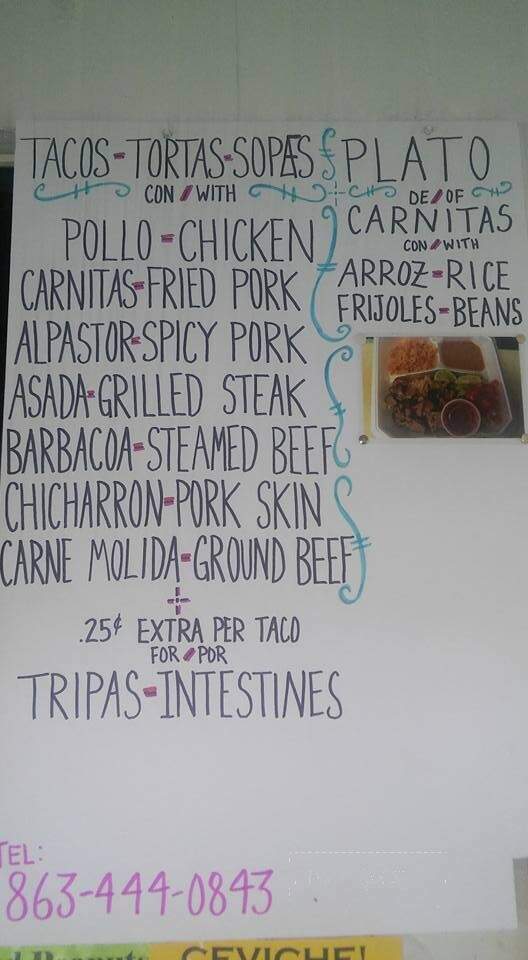 TACOS=TORTAS=SOPES
CON / WITH
POLLO=CHICKEN
CARNITAS=FRIED PORK
ALPASTOR=SPICY PORK
ASADA=GRILLED STEAK
BARBACOA=STEAMED BEEF
CHICHARRON=PORK SKIN
CARNE MOLIDA=GROUND BEEF
+
.25¢ EXTRA PER TACO
FOR / POR
TRIPAS=INTESTINES
PLATO
DE / OF
CARNITAS
CON / WITH
ARROZ=RICE
FRIJOLES=BEANS
TEL:
863-444-0843
CEVICHE!